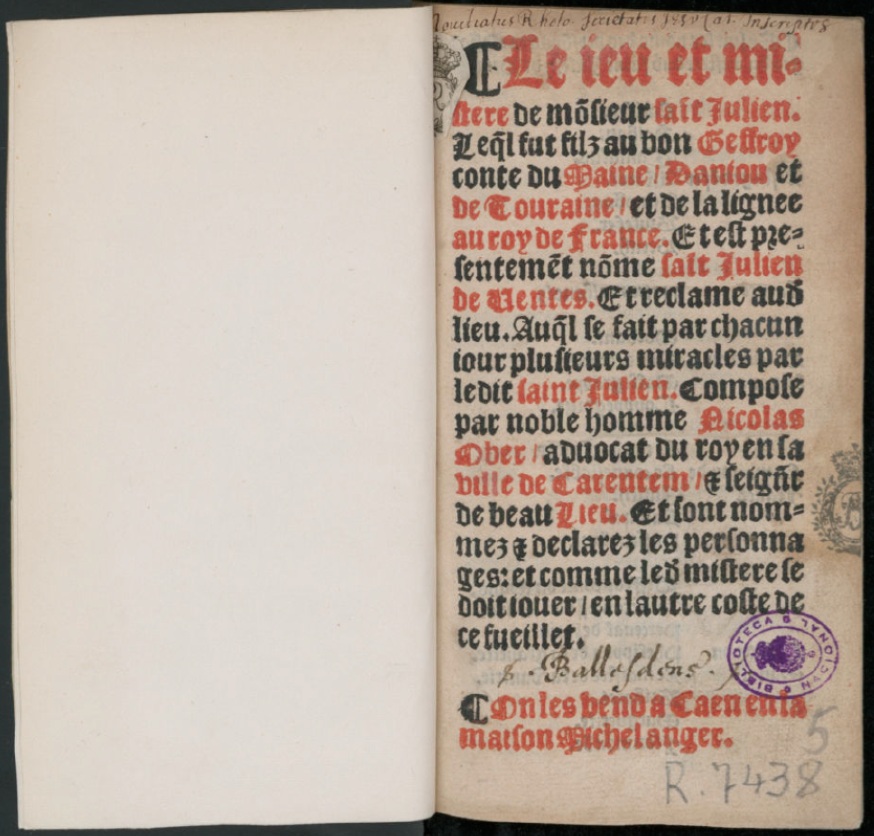 ¶ Le ieu et mi-
stere de mõsieur saĩt Julien.
Leq̃l fut filz au bon Geffroy
conte du Maine / Daniou et
de Touraine / et de la lignee
au roy de France. Et est pre-
sentemẽt nõme saĩt Julien
de Ventes. Et reclame aud̃
lieu. Auq̃l se fait par chacun
iour plusieurs miracles par
ledit saint Julien. Compose
par noble homme Nicolas
Ober / aduocat du roy en sa
ville de Carentem / & seigñr
de beau Lieu. Et sont nom-
mez & declarez les personna
ges: et comme led̃ mistere se
doit iouer / en lautre coste de
ce fueillet.
Ballesdens.
¶ On les vend a Caen en la
maison Michel anger.
BIBLIOTECA NACIONAL
5
R. 7438